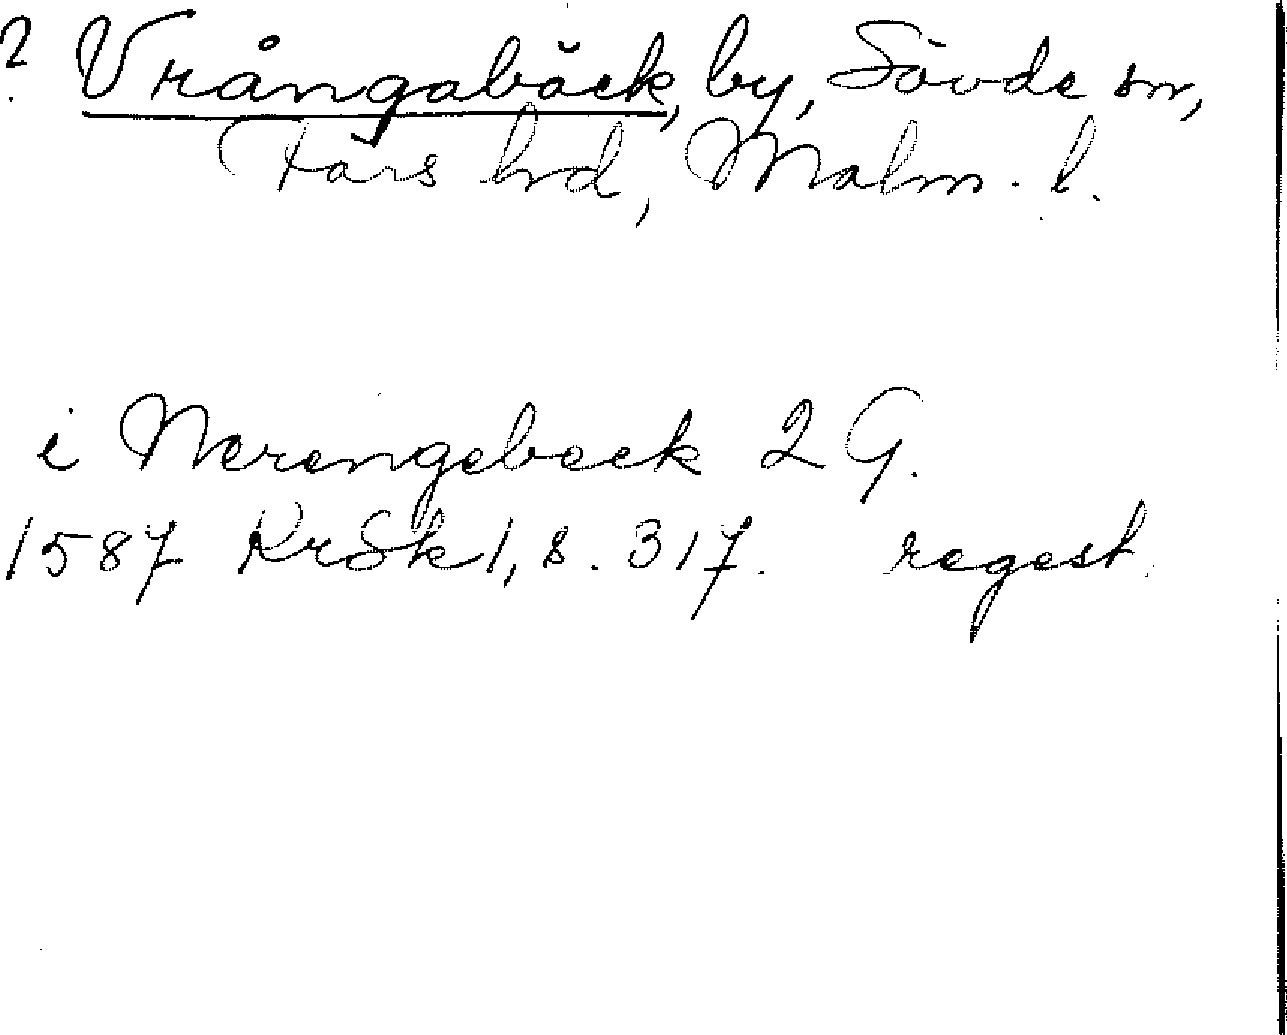 ? Vrångabäck, by, Sövde sn,
Färs hd, Malm. l.
i Werengebeck 2 G.
1587 KrSk 1, s. 317. regest.